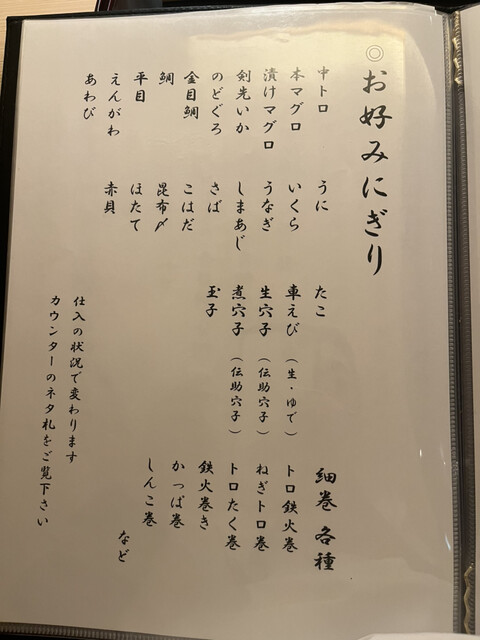 ◎お好みにぎり
中トロ
本マグロ
漬けマグロ
剣先いか
のどぐろ
金目鯛
鯛
平目
えんがわ
あわび
うに
いくら
うなぎ
しまあじ
さば
こはだ
昆布〆
ほたて
赤貝
たこ
車えび（生・ゆで）
生穴子（伝助穴子）
煮穴子（伝助穴子）
玉子
細巻 各種
トロ鉄火巻
ねぎトロ巻
トロたく巻
鉄火巻き
かっぱ巻
しんこ巻
など
仕入の状況で変わります
カウンターのネタ札をご覧下さい